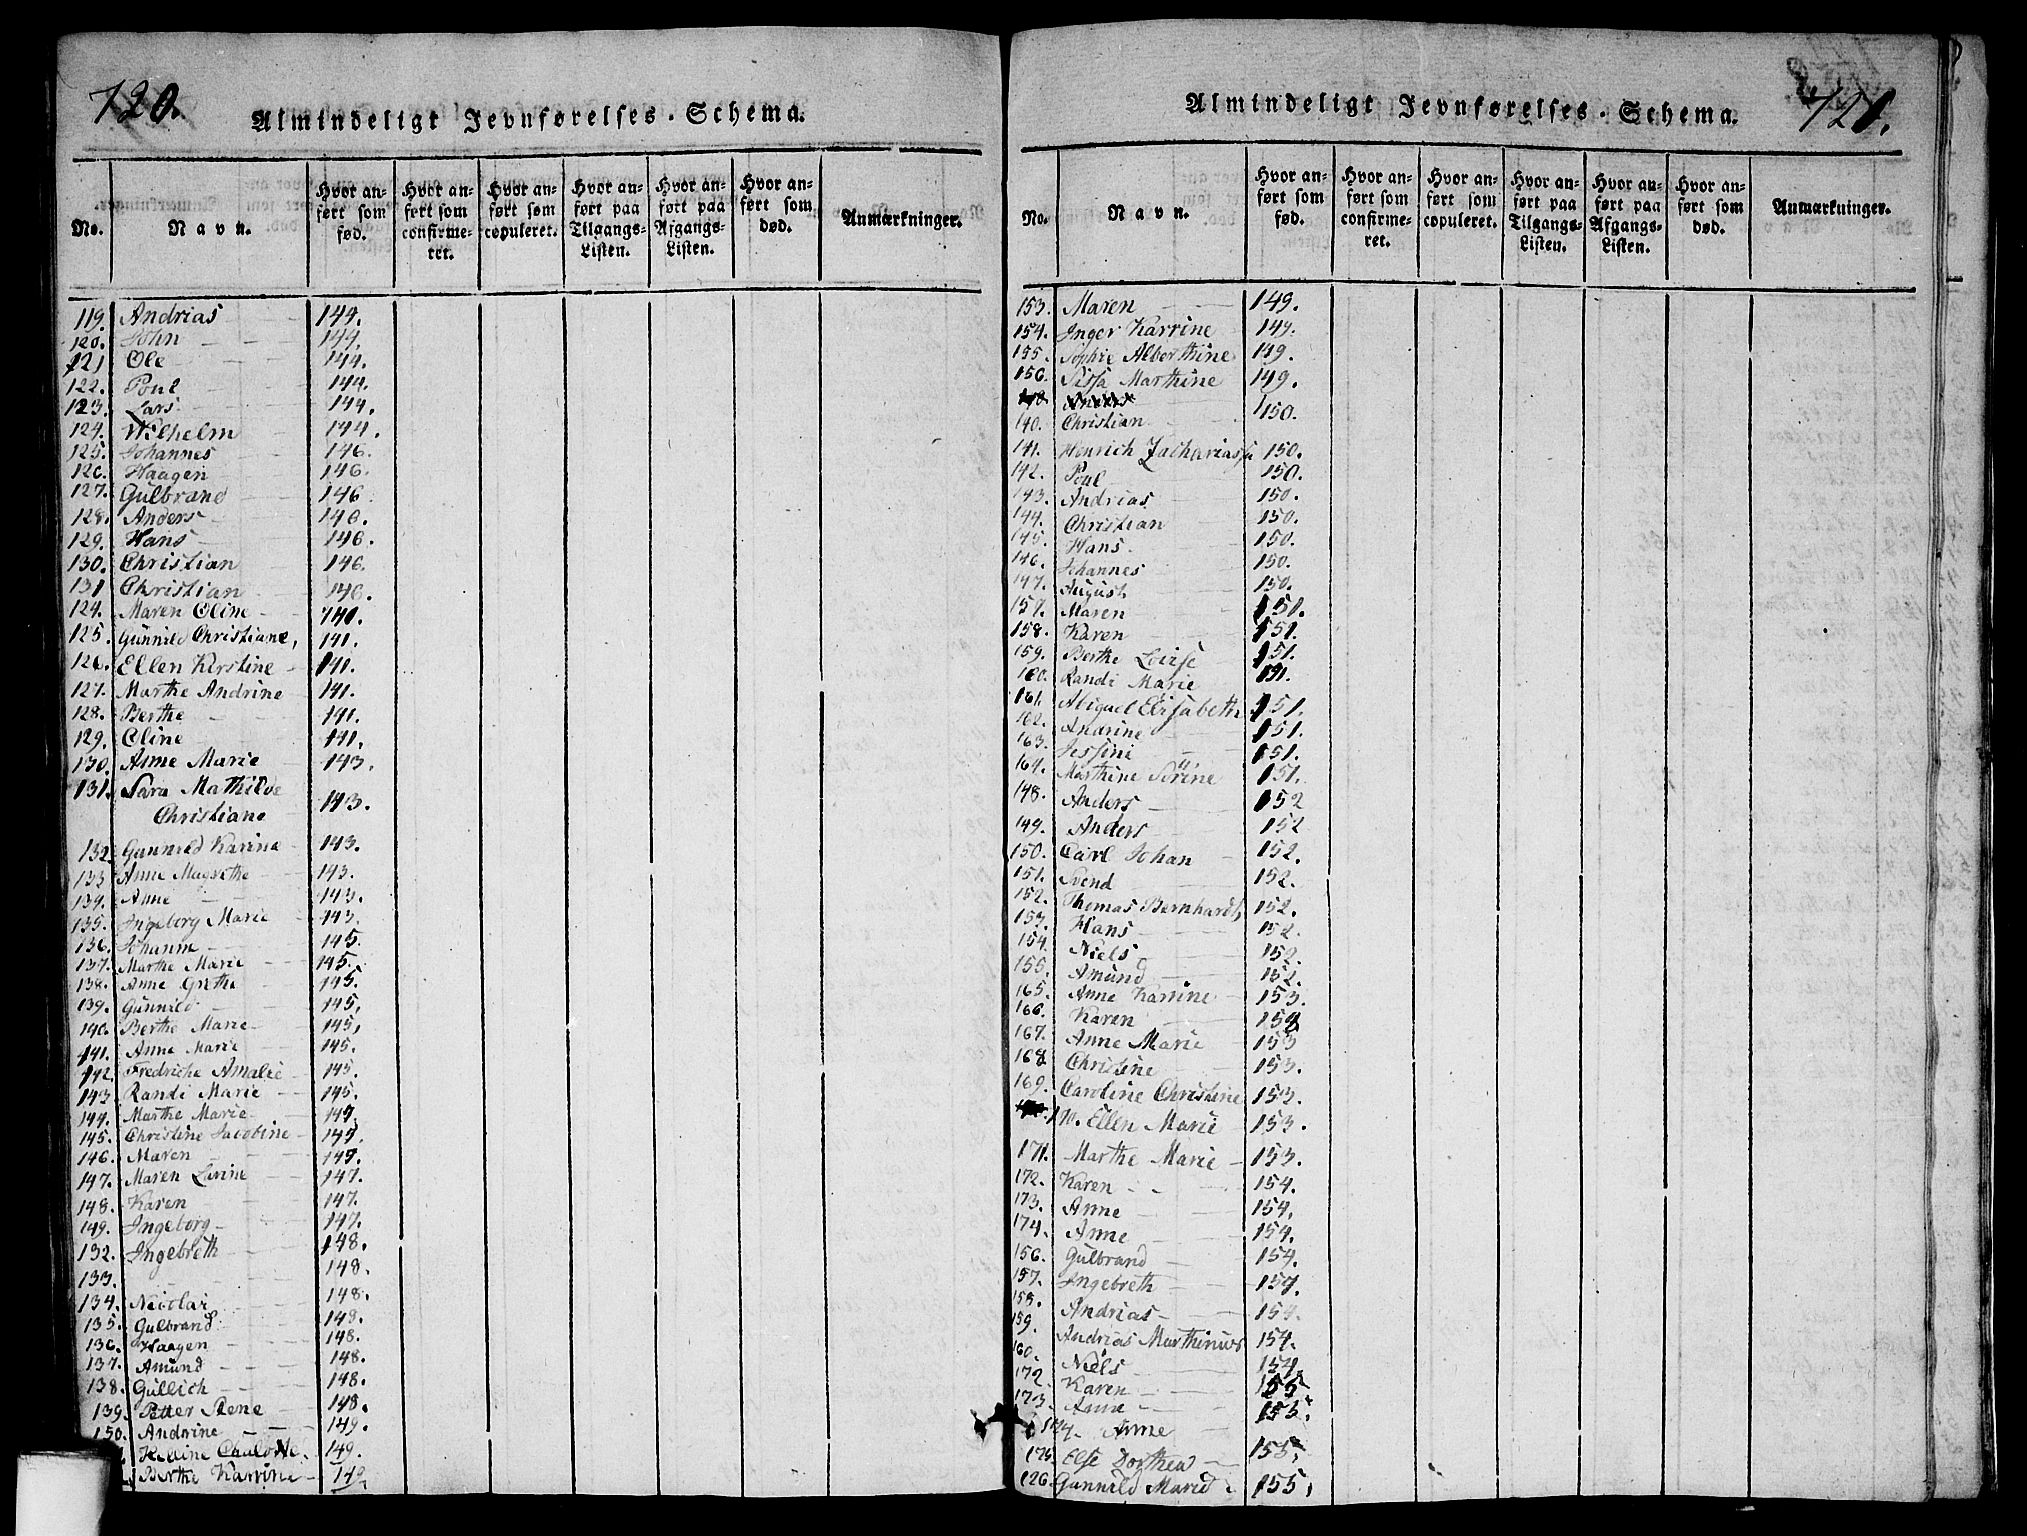 120.
Almindeligt Jevnførelses-Schema.
No.
Navn.
Hvor anført som fød.
Hvor anført som confirmeret.
Hvor anført som copuleret.
Hvor anført paa Tilgangs-Listen.
Hvor anført paa Afgangs-Listen.
Hvor anført som død.
Anmærkninger.
119. Andrias 144.
120. John 144.
121 Ole 144.
122. Poul 144.
123. Lars 144.
124. Wilhelm 144.
125. Johannes 146.
126. Haagen 146.
127. Gulbrand 146.
128. Anders 146.
129. Hans 146.
130. Christian 146.
131 Christian 146.
124. Maren Oline 141.
125. Gunnild Christiane, 141.
126. Ellen Kirstine 141.
127. Marthe Andrine 141.
128. Berthe 141.
129. Oline 141.
130. Anne Marie 143.
131. Sara Mathilde
Christiane 143.
132. Gunnild Karine 143.
133 Anne Magrethe 143.
134. Anne 143.
135. Ingeborg Marie 143.
136. Johanne 145.
137. Marthe Marie 145.
138. Anne Grethe 145.
139. Gunnild 145.
140. Berthe Marie 145.
141. Anne Marie 145.
142. Fredriche Amalie 145.
143. Randi Marie 145.
144. Marthe Marie 147.
145. Christine Jacobine 147.
146. Maren 147.
147. Maren Lovine 147.
148. Karen 147.
149. Ingeborg 147.
132. Ingebreth 148.
133. 148.
134. Nicolai 148.
135. Gulbrand 148.
136. Haagen 148.
137. Amund 148.
138. Gullich 148.
139. Petter Stene 148.
150. Andrine 149.
149.
Berthe Karrine 149
Almindeligt Jevnførelses-Schema.
121.
No.
Navn.
Hvor anført som fød.
Hvor anført som confirmeret.
Hvor anført som copuleret.
Hvor anført paa Tilgangs-Listen.
Hvor anført paa Afgangs-Listen.
Hvor anført som død.
Anmærkninger.
153. Maren 149.
154. Inger Karrine 149.
155. Sophie Alberthine 149.
156. Sissa Marthine 149.
140. Christian 150.
141. Henrich Zacharias 150.
142. Poul 150.
143. Andrias 150.
144. Christian 150.
145. Hans 150.
146. Johannes 150.
147. August 150.
157. Maren 151.
158. Karen 151.
159. Berthe Louise 151.
160. Randi Marie 151.
161. Abiguel Elisabeth 151.
162. Andrine 151.
163. Jessine 151.
164. Marthine Sörine 151.
148. Anders 152
149. Anders 152
150. Carl Johan 152.
151. Svend 152.
152. Thomas Bernhardt, 152.
153. Hans 152.
154. Niels 152.
155. Amund 152.
165. Anne Karrine 153.
166. Karen 153
167. Anne Marie 153
168 Christine 153.
169. Caroline Christine 153.
170. Ellen Marie 153.
171. Marthe Marie 153.
172. Karen 154.
173. Anne 154.
174. Anne 154.
156. Gulbrand 154.
157. Ingebreth 154.
158. Andrias 154.
159. Andrias Marthinus 154.
160. Niels 154.
172. Karen 155
173. Anne 155.
Anne
175. Else Dorthea 155.
126. Gunnild Marie 155.